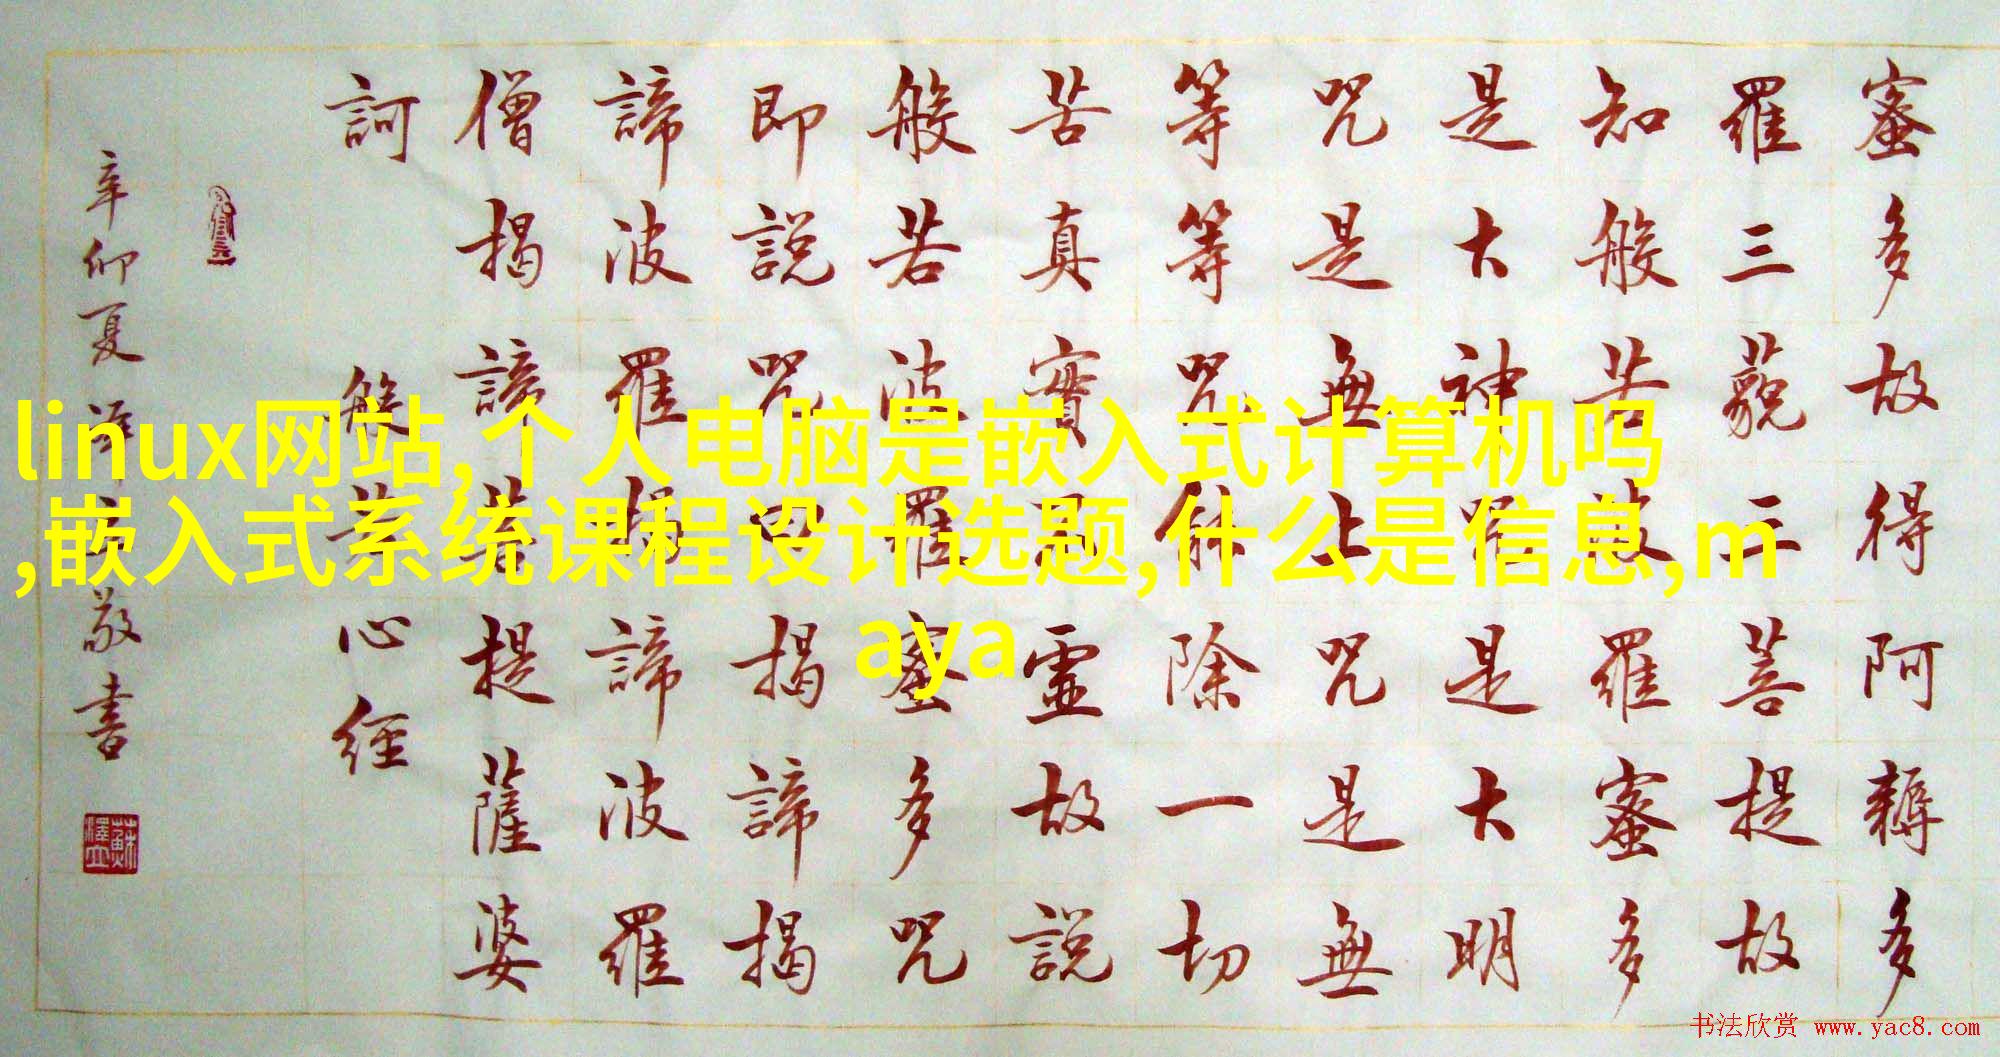 蜜多故得阿耨多
羅三藐三菩提故
知般若波羅蜜多
是大神咒是大明
咒是無上咒是無
等等咒能除一切
苦真實不虛故說
般若波羅蜜多咒
即說咒曰揭諦揭
諦波羅揭諦波羅
僧揭諦菩提薩婆
訶
般若心經
辛卯夏
敬書
linux网站,个人电脑是嵌入式计算机吗
,嵌入式系统课程设计选题,什么是信息,m
aya
书法欣赏 www.yac8.com